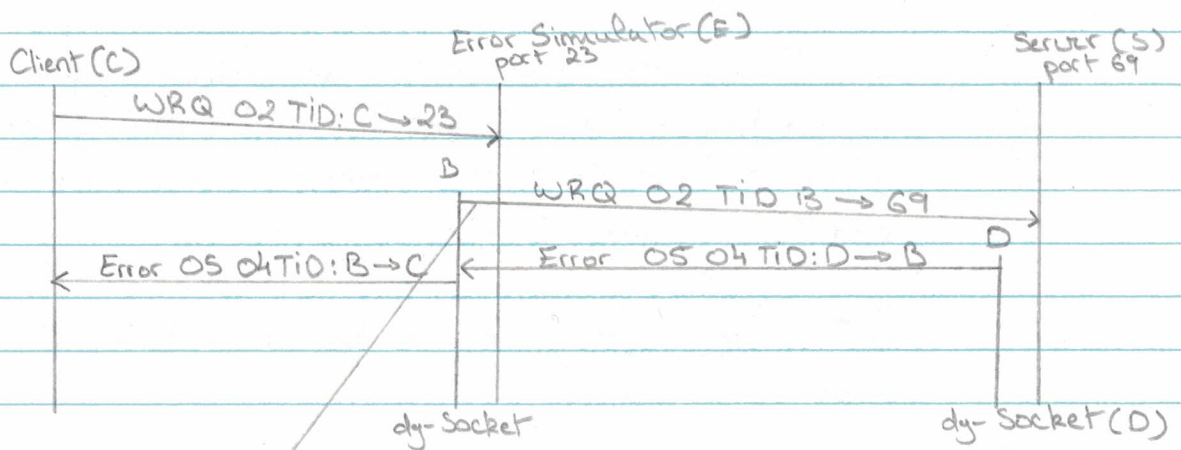 Client (C)
Error Simulator (E)
port 23
Server (S)
port 69
WRQ 02 TiD: C → 23
B
WRQ 02 TiD B → 69
D
Error 05 04 TiD: B → C
Error 05 04 TiD: D → B
dy-Socket
dy-Socket (D)